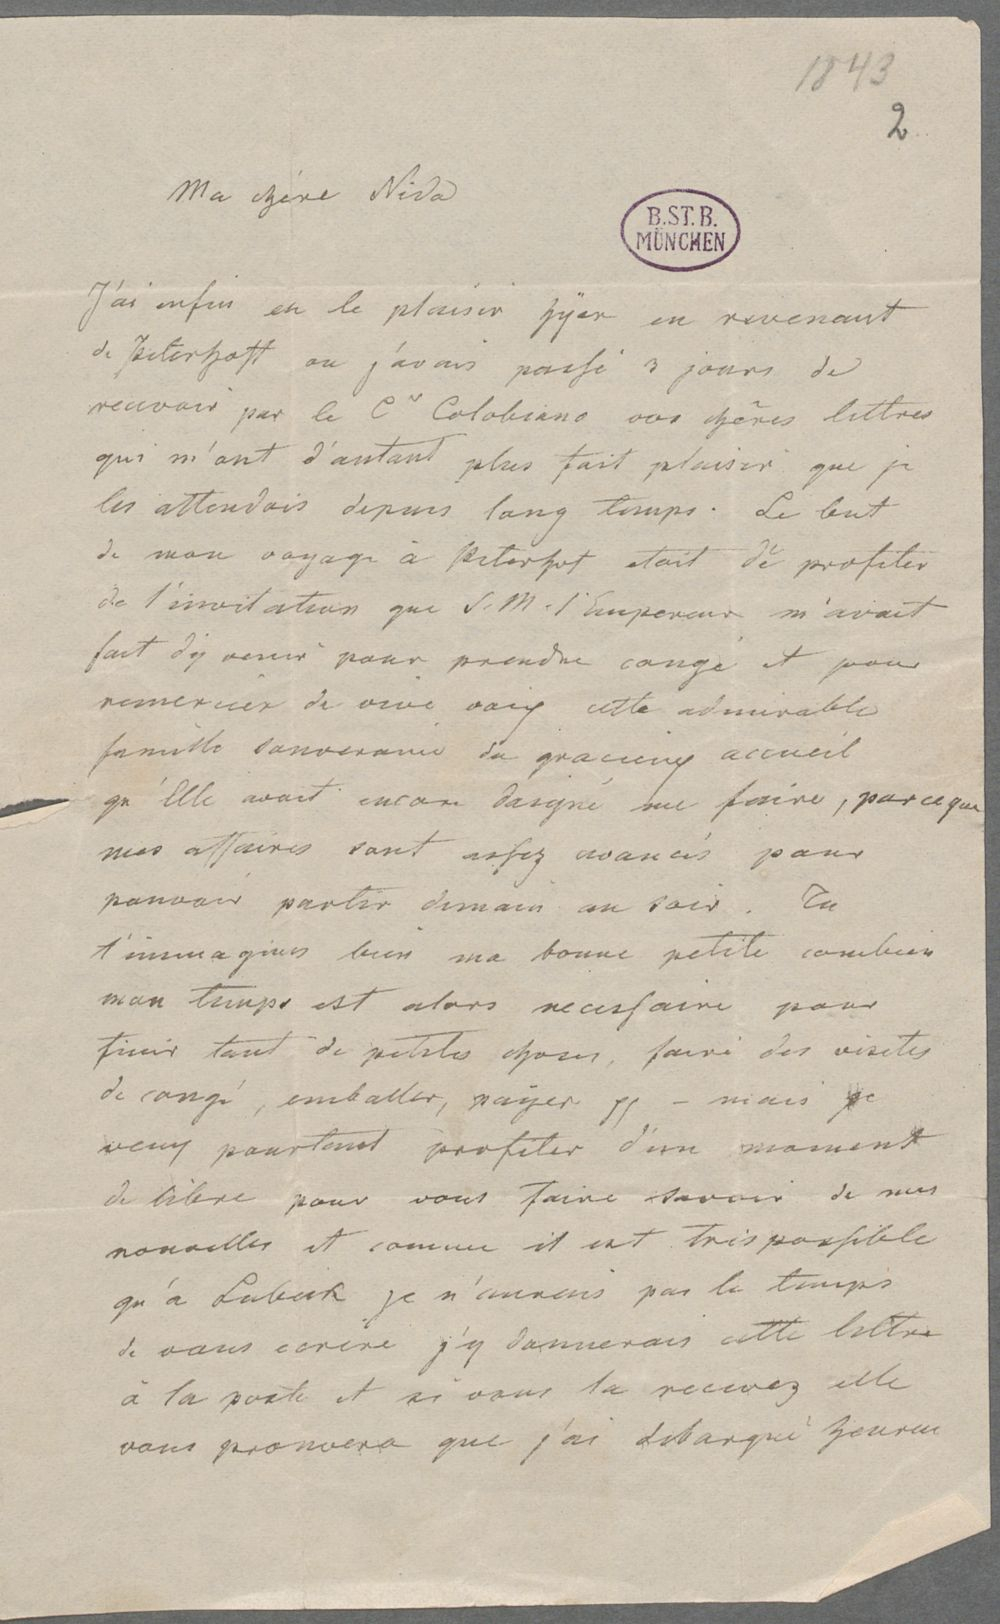 1843
2
Ma chére Nida
B.ST.B.
MÜNCHEN
J'ai enfin eu le plaisir hÿer en revenant
de Peterhoff ou j'avais passé 3 jours de
recevoir par le C. Colobiano vos chères lettres
qui m'ont d'autant plus fait plaisir que je
les attendois depuis long temps. Le but
de mon voyage à Peterhof etoit de profiter
de l'invitation que S. M. l'Empereur m'avait
fait d'y venir pour prendre congé et pour
remercier de vive voix cette admirable
famille souveraine du gracieux accueil
qu'Elle avoit encore daigné me faire, parceque
mes affaires sont assez avancés pour
pouvoir partir demain au soir. Tu
t'immagines bien ma bonne petite combien
mon temps est alors necessaire pour
finir tant de petites choses, faire des visites
de congé, emballer, payer – mais je
veux pourtant profiter d'un moment
de libre pour vous faire savoir de mes
nouvelles et comme il est très possible
qu'a Lubeck je n'aurais pas le temps
de vous ecrire j'y donnerais cette lettre
à la poste et si vous la recevez elle
vous prouvera que j'ai debarqué heureu